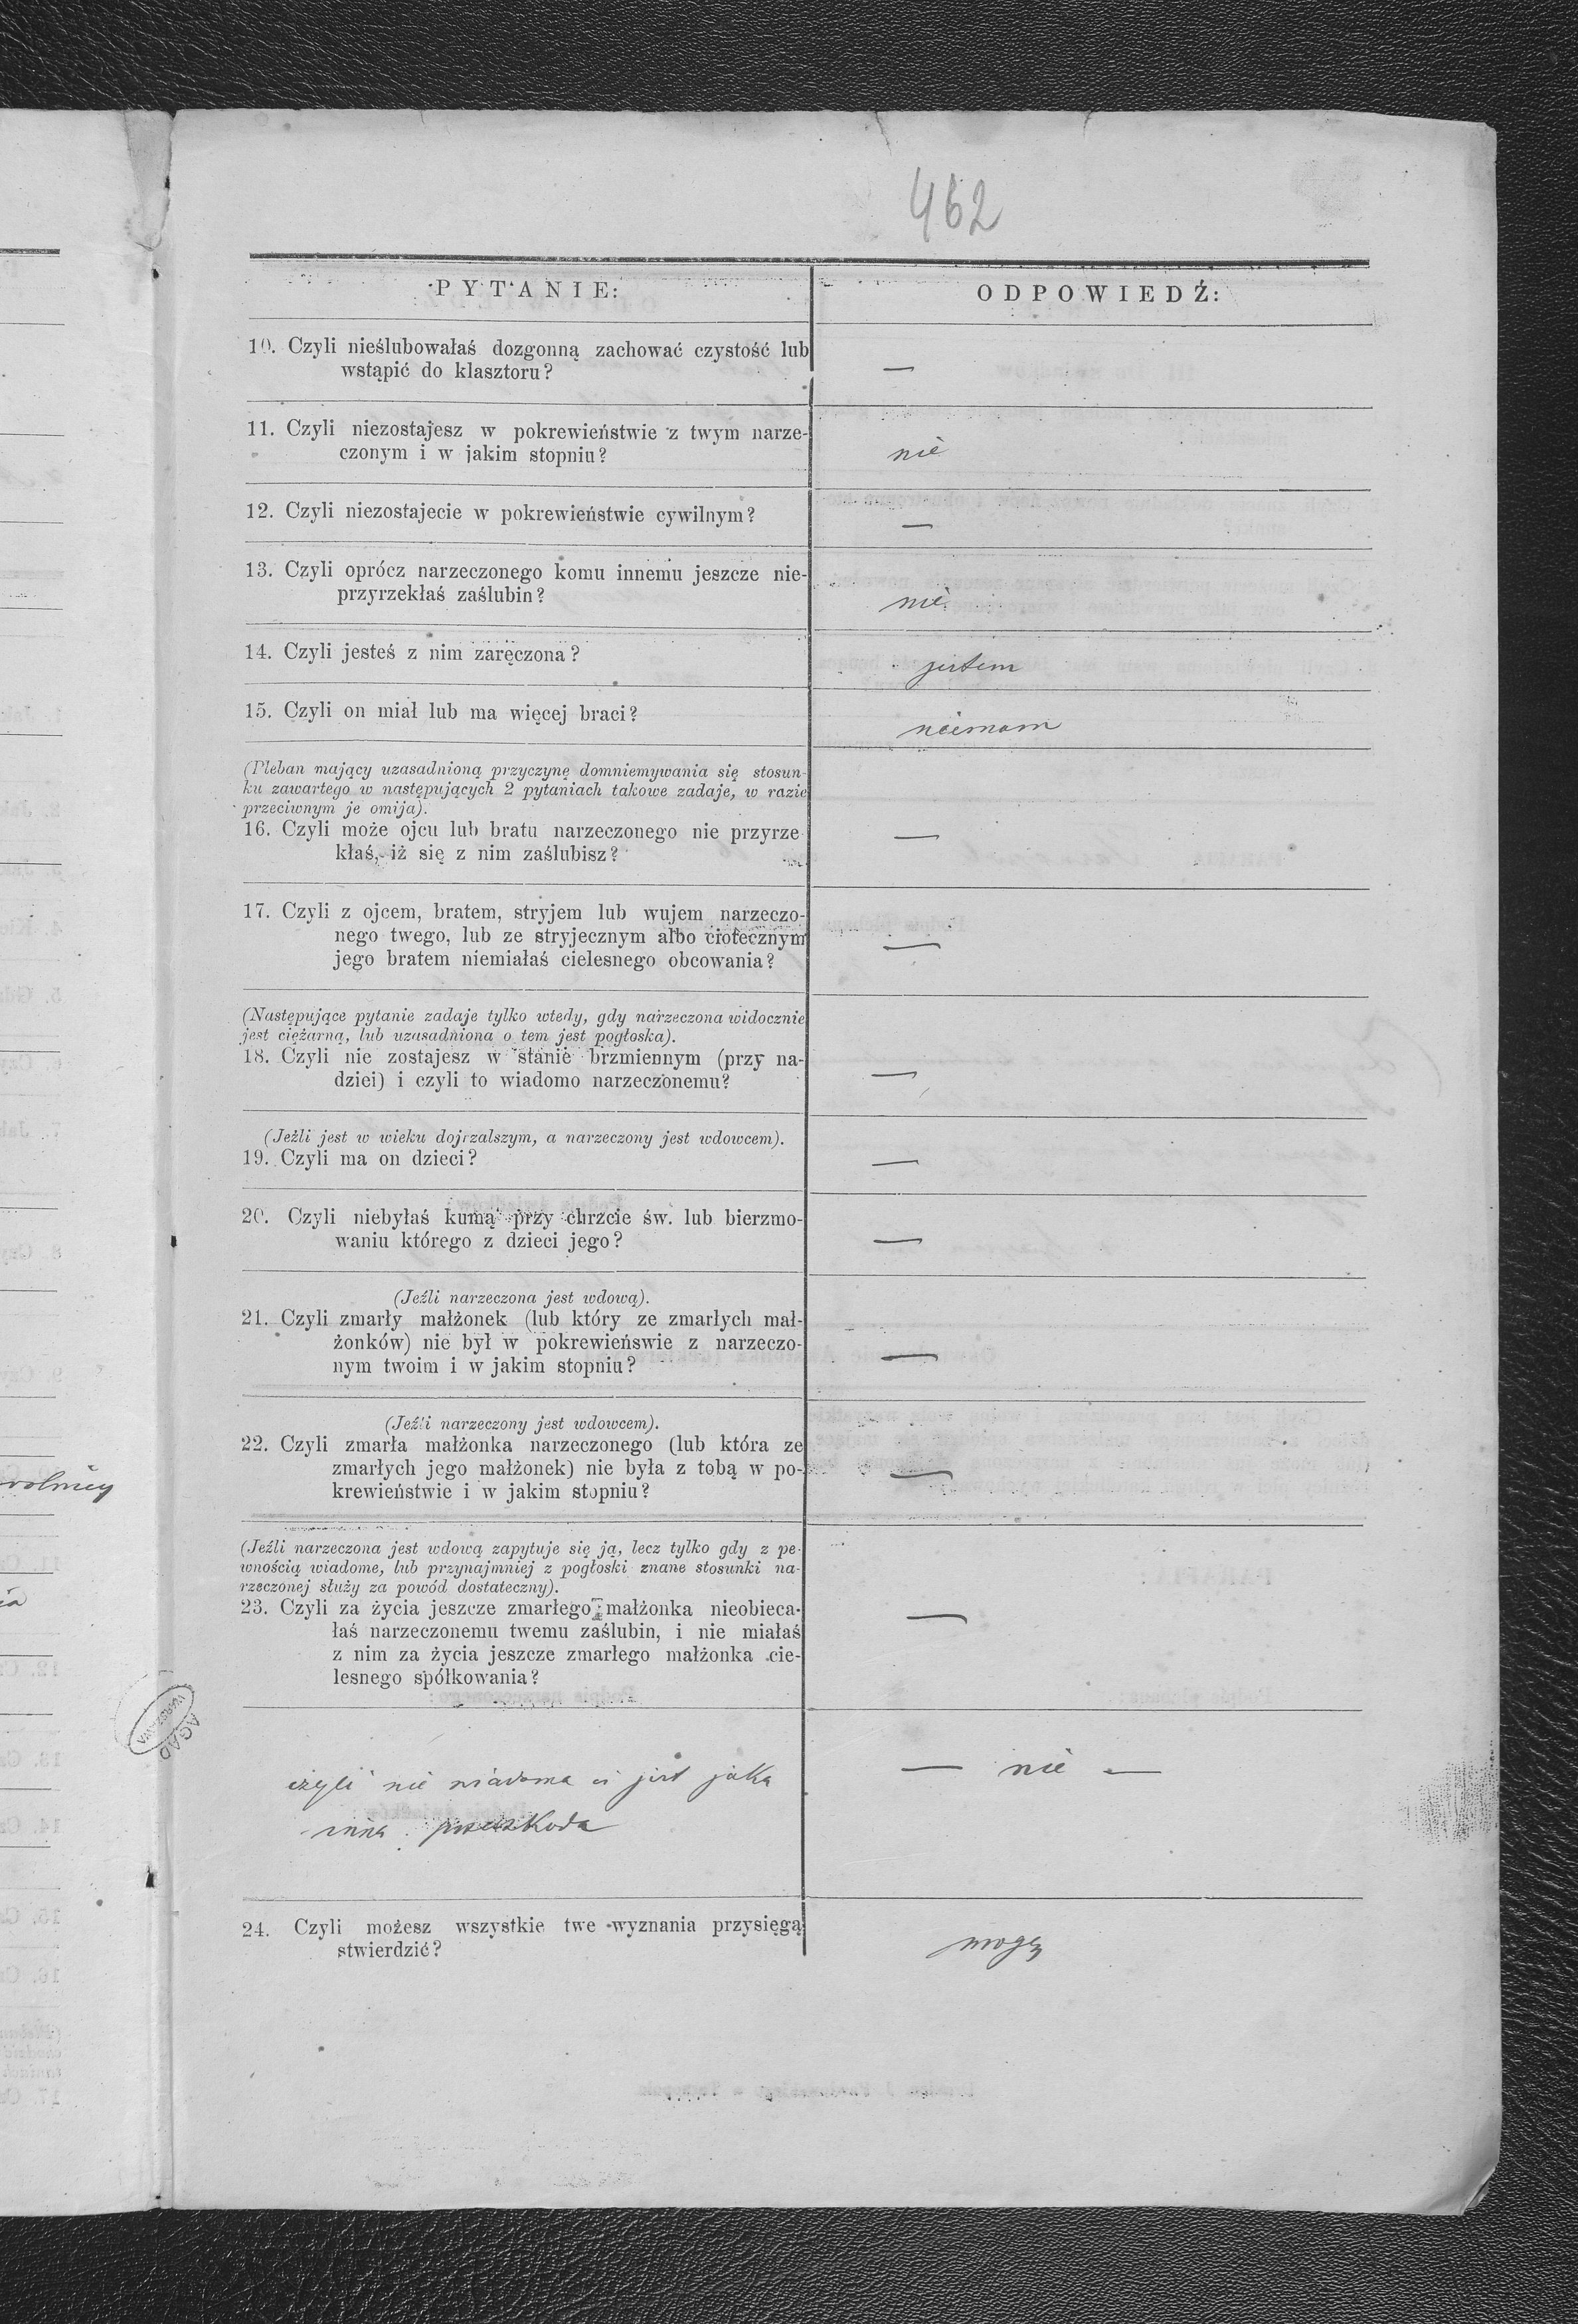 462
PYTANIE:
ODPOWIEDŹ:
10. Czyli nieślubowałaś dozgonną zachować czystość lub
wstąpić do klasztoru?
—
11. Czyli niezostajesz w pokrewieństwie z twym narze-
czonym i w jakim stopniu?
nie
12. Czyli niezostajecie w pokrewieństwie cywilnym?
—
13. Czyli oprócz narzeczonego komu innemu jeszcze nie-
przyrzekłaś zaślubin?
nie
14. Czyli jesteś z nim zaręczona?
jestem
15. Czyli on miał lub ma więcej braci?
niemam
(Pleban mający uzasadnioną przyczynę domniemywania się stosun-
ku zawartego w następujących 2 pytaniach takowe zadaje, w razie
przeciwnym je omija).
16. Czyli może ojcu lub bratu narzeczonego nie przyrze
kłaś, iż się z nim zaślubisz?
—
17. Czyli z ojcem, bratem, stryjem lub wujem narzeczo-
nego twego, lub ze stryjecznym albo ciotecznym
jego bratem niemiałaś cielesnego obcowania?
—
(Następujące pytanie zadaje tylko wtedy, gdy narzeczona widocznie
jest ciężarną, lub uzasadniona o tem jest pogłoska).
18. Czyli nie zostajesz w stanie brzmiennym (przy na-
dziei) i czyli to wiadomo narzeczonemu?
—
(Jeżli jest w wieku dojrzalszym, a narzeczony jest wdowcem).
19. Czyli ma on dzieci?
—
20. Czyli niebyłaś kumą przy chrzcie św. lub bierzmo-
waniu którego z dzieci jego?
—
(Jeźli narzeczona jest wdową).
21. Czyli zmarły małżonek (lub który ze zmarłych mał-
żonków) nie był w pokrewieńswie z narzeczo-
nym twoim i w jakim stopniu?
—
(Jeźli narzeczony jest wdowcem).
22. Czyli zmarła małżonka narzeczonego (lub która ze
zmarłych jego małżonek) nie była z tobą w po-
krewieństwie i w jakim stopniu?
—
(Jeźli narzeczona jest wdową zapytuje się ją, lecz tylko gdy z pe-
wnością wiadome, lub przynajmniej z pogłoski znane stosunki na-
rzeczonej służy za powód dostateczny).
23. Czyli za życia jeszcze zmarłego małżonka nieobieca-
łaś narzeczonemu twemu zaślubin, i nie miałaś
z nim za życia jeszcze zmarłego małżonka cie-
lesnego spółkowania?
—
czyli nie wiadoma ci jest jaka
inna przeszkoda
— nie —
24. Czyli możesz wszystkie twe wyznania przysięgą
stwierdzić?
mogę
AGAD
WARSZAWA